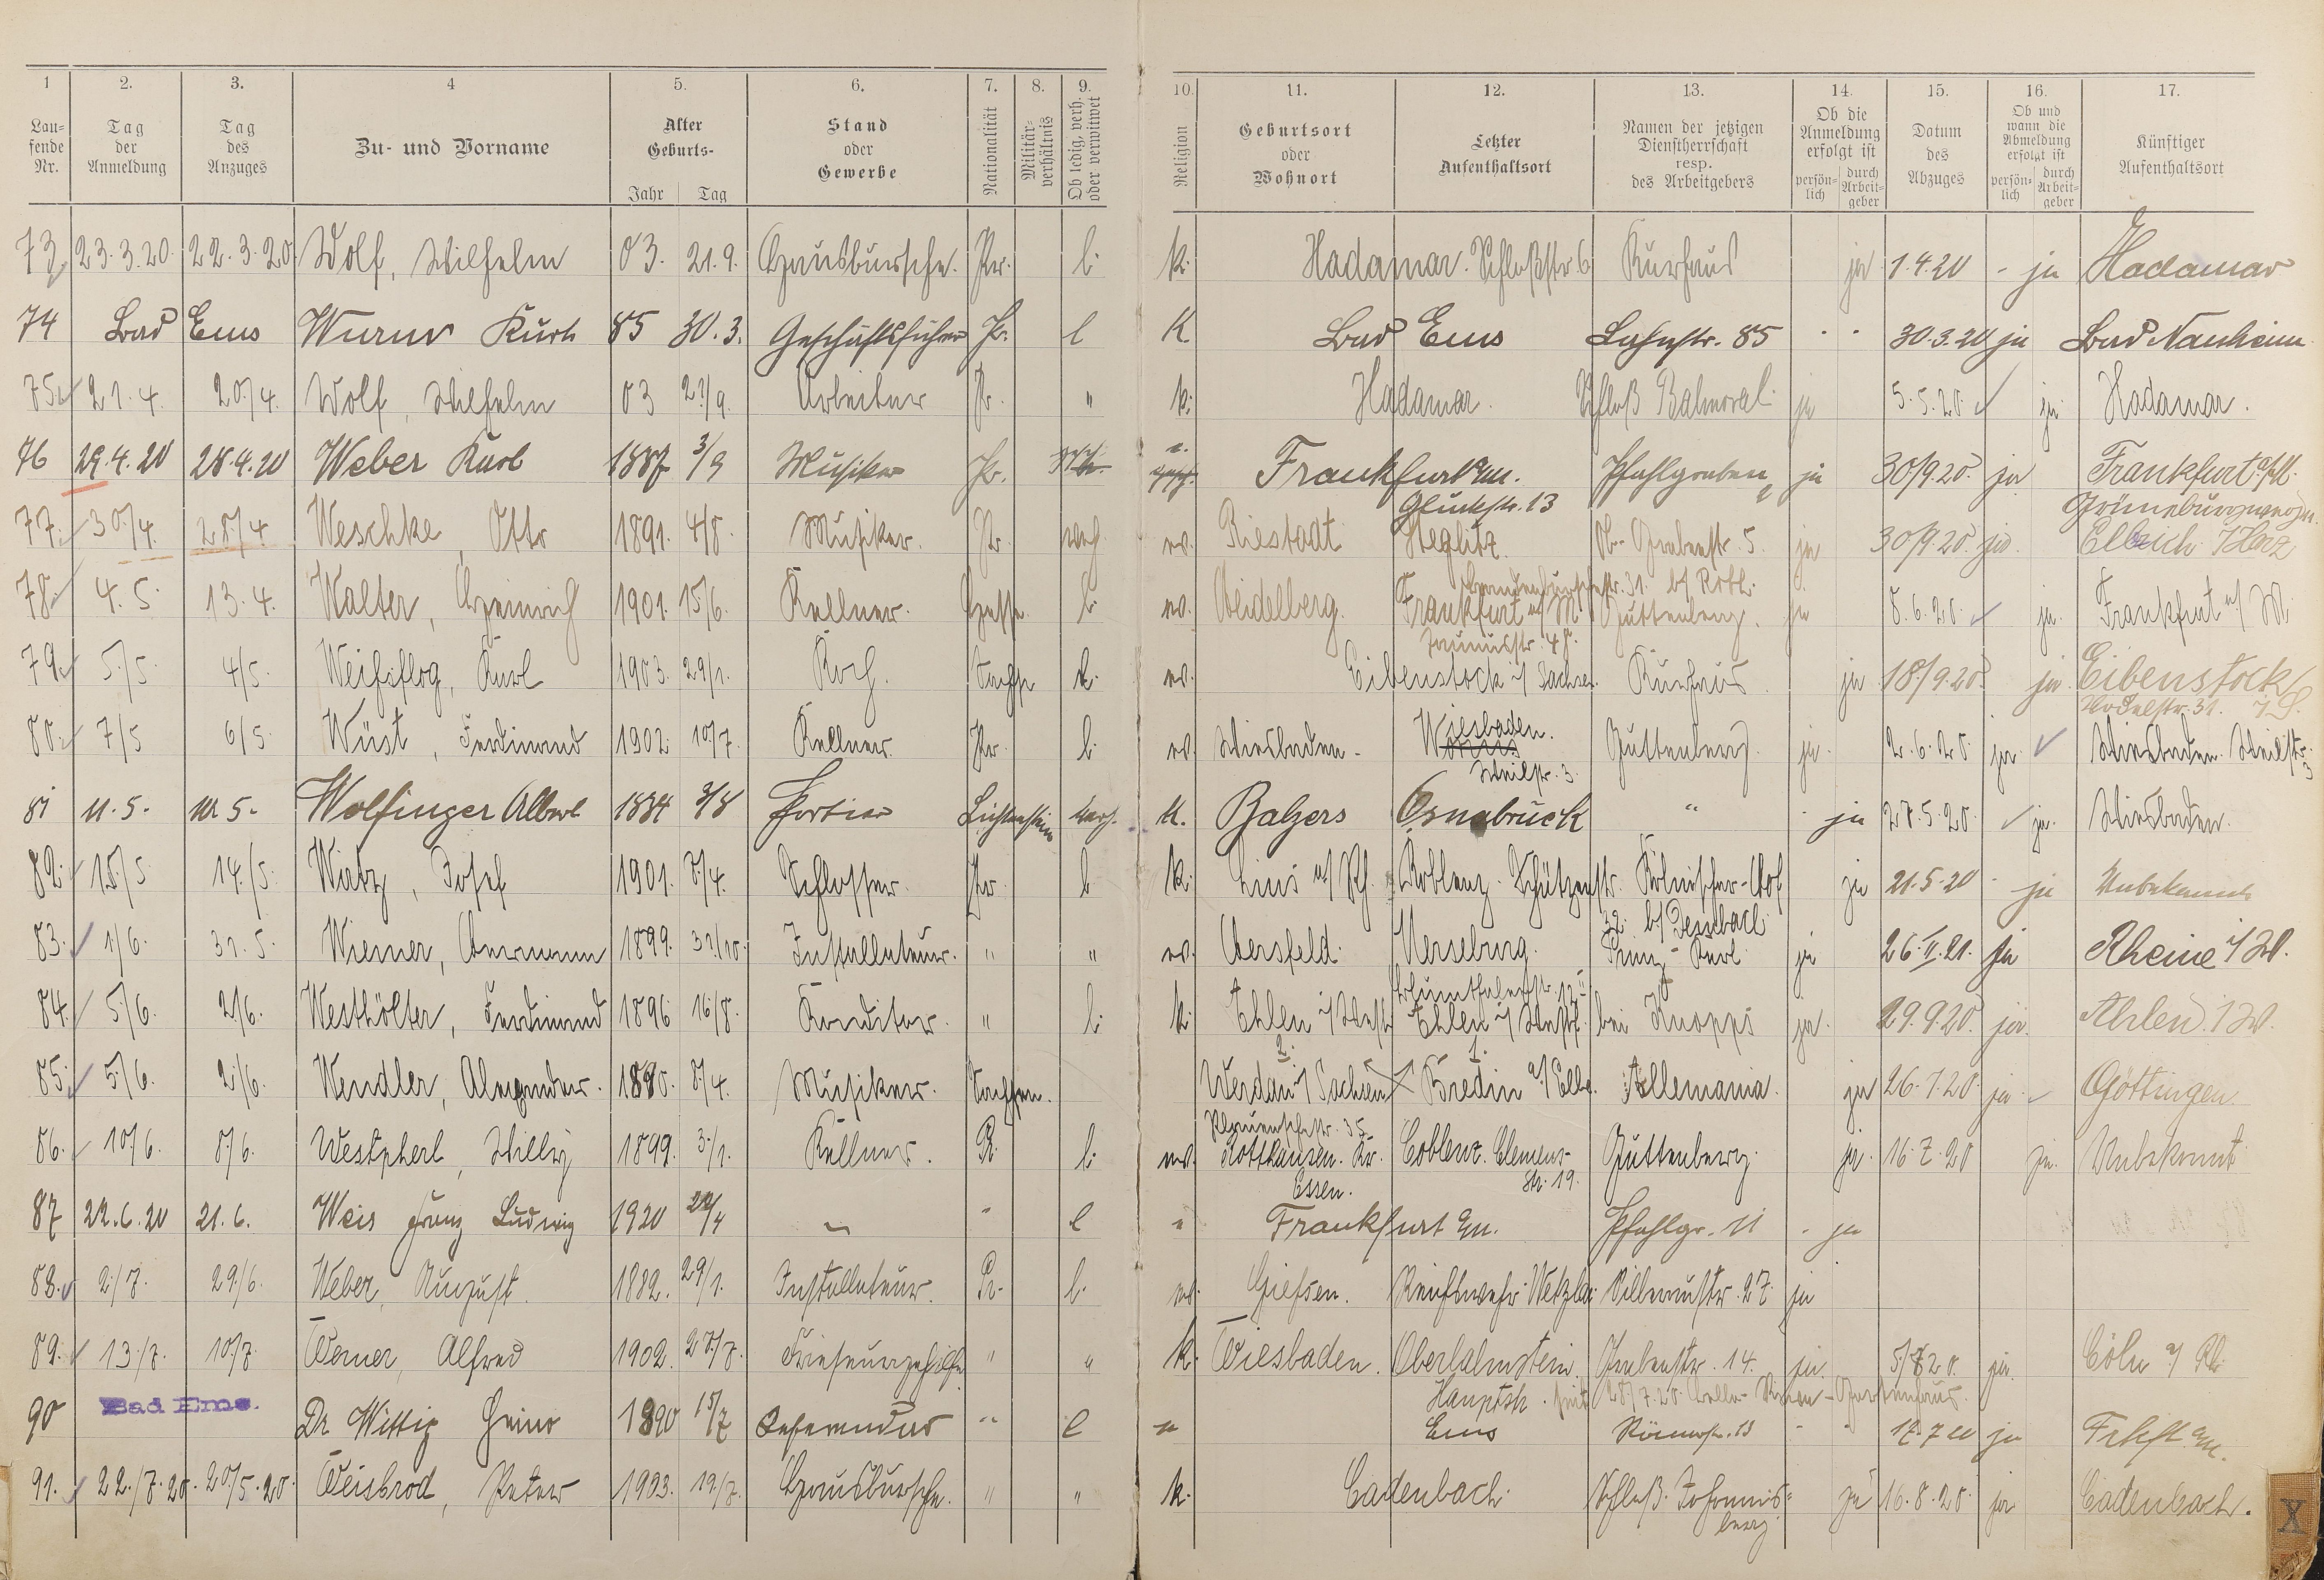 1 2. 3. 4 5. 6. 7. 8. 9. 10. 11. 12. 13. 14. 15. 16. 17.
Lau-
fende
Nr.
Tag
der
Anmeldung
Tag
des
Anzuges
Zu- und Vorname
Alter
Geburts-
Jahr Tag
Stand
oder
Gewerbe
Nationalität
Militär-
verhältnis
Ob ledig, verh.
oder verwitwet
Religion
Geburtsort
oder
Wohnort
Letzter
Aufenthaltsort
Namen der jetzigen
Dienstherrschaft
resp.
des Arbeitgebers
Ob die
Anmeldung
erfolgt ist
persön-
lich
durch
Arbeit-
geber
Datum
des
Abzuges
Ob und
wann die
Abmeldung
erfolgt ist
persön-
lich
durch
Arbeit-
geber
Künftiger
Aufenthaltsort
73 23.3.20. 22.3.20 Wolf, Wilhelm 03. 21.9. Hausbursche. Pr. l. k. Hadamar. Schloßstr. 6 Kurhaus ja 1.4.20 - ja Hadamar
74 Bad Ems Wurm Kurt 85 30.3. Geschäftsführer Pr. l K. Bad Ems Lahnstr. 85 " " 30.3.20 ja Bad Nauheim
75. 21.4. 20/4. Wolf, Wilhelm 03 21/9. Arbeiter Pr. " k. Hadamar. Schloß Balmoral. ja 5.5.20. ja. Hadamar.
76 29.4.20 28.4.20 Weber Karl 1887 3/9 Musiker Pr. Frankfurt a/m. Pfahlgraben ja 30/9.20. ja Frankfurt a/M.
Glückstr. 13
77. 30/4. 28/4 Weschke, Otto 1891. 4/8. Musiker. Pr. verh. ev. Riestadt Steglitz. Ob. Grabenstr. 5. ja 30/9.20. ja. Ellrich i/Harz
78. 4.5. 13.4. Walter, Heinrich 1901. 15/6. Kellner. Hesse l. ev. Heidelberg. Frankfurt a/M Guttenberg. ja 8.6.20. ja. Frankfurt a/M.
79. 5/5. 4/5. Weißflog, Karl 1903. 29/1. Koch. Sachse l. ev. Eibenstock i/Sachsen. Kurhaus ja 18/9.20. ja. Eibenstock
80. 7/5 6/5. Wüst, Ferdinand 1902. 10/7. Kellner Pr. l. ev. Wiesbaden - Wiesbaden. Guttenberg. ja. 2.6.20. ja. Wiesbaden. Weilstr. 3
Weilstr. 3.
81 11.5. 10.5. Wolfinger Albert 1884 3/8 Portier Lichtenstein verh. K. Balzers Osnabrück " - ja 28.5.20. ja. Wiesbaden.
82. 15/5. 14/5. Wirtz, Josef 1901. 8/4. Schlosser. Pr. l k. Linz a/Rh. Koblenz. Schützenstr. Kölnischer-Hof ja 21.5.20 - ja Unbekannt
83. 1/6. 31.5. Wiemer, Hermann 1899. 31/10. Installateur. " " ev. Hersfeld. Merseburg. Prinz-Karl ja 26.II.21. ja Rheine i/W.
84. 5/6. 2/6. Westhölter, Ferdinand 1896 16/8. Konditor. " l. k. Ahlen i/Westf. Ahlen i/Westf. bei Knopps ja. 29.9.20. ja. Ahlen i/W.
85. 5/6. 2/6. Wendler, Alexander. 1890. 8/4. Musiker. Sachsen. Werdau i/Sachsen Bredin a/Elbe. Allemania. ja 26.7.20. ja. Göttingen.
86. 10/6. 8/6. Westpherl, Willy 1899. 3/1. Kellner. Pr. l. ev. Rotthausen. Kr. Coblenz. Clemens- Guttenberg. ja. 16.7.20 ja. Unbekannt
Essen. str. 19.
87 22.6.20 21.6. Weis Franz Ludwig 1920 – " l " Frankfurt a/m. Pfahlgr. 11 - ja
88. 2/7. 29/6. Weber, August. 1882. 29/1. Installateur. Pr. l. ev. Giessen. Reichswehr Wetzlar. Silberaustr. 27. ja
89. 13/7. 10/7. Werner, Alfred 1902. 28/7. Friseurgehilfe " " k. Wiesbaden. Oberlahnstein. Grabenstr. 14. ja. 5/8 20. ja. Cöln a/Rh.
90 Bad Ems. Dr. Wittig Heino 1890 15/7 Referendar " l " Ems Römerstr. 13 - " 17.7.20 ja Frkft a/m.
91. 22./7.20. 20/5.20. Weisbrod, Peter 1903. 19/7. Hausbursche. " " k. Cadenbach. Schloß. Johannis- ja 16.8.20. ja Cadenbach.
berg
X